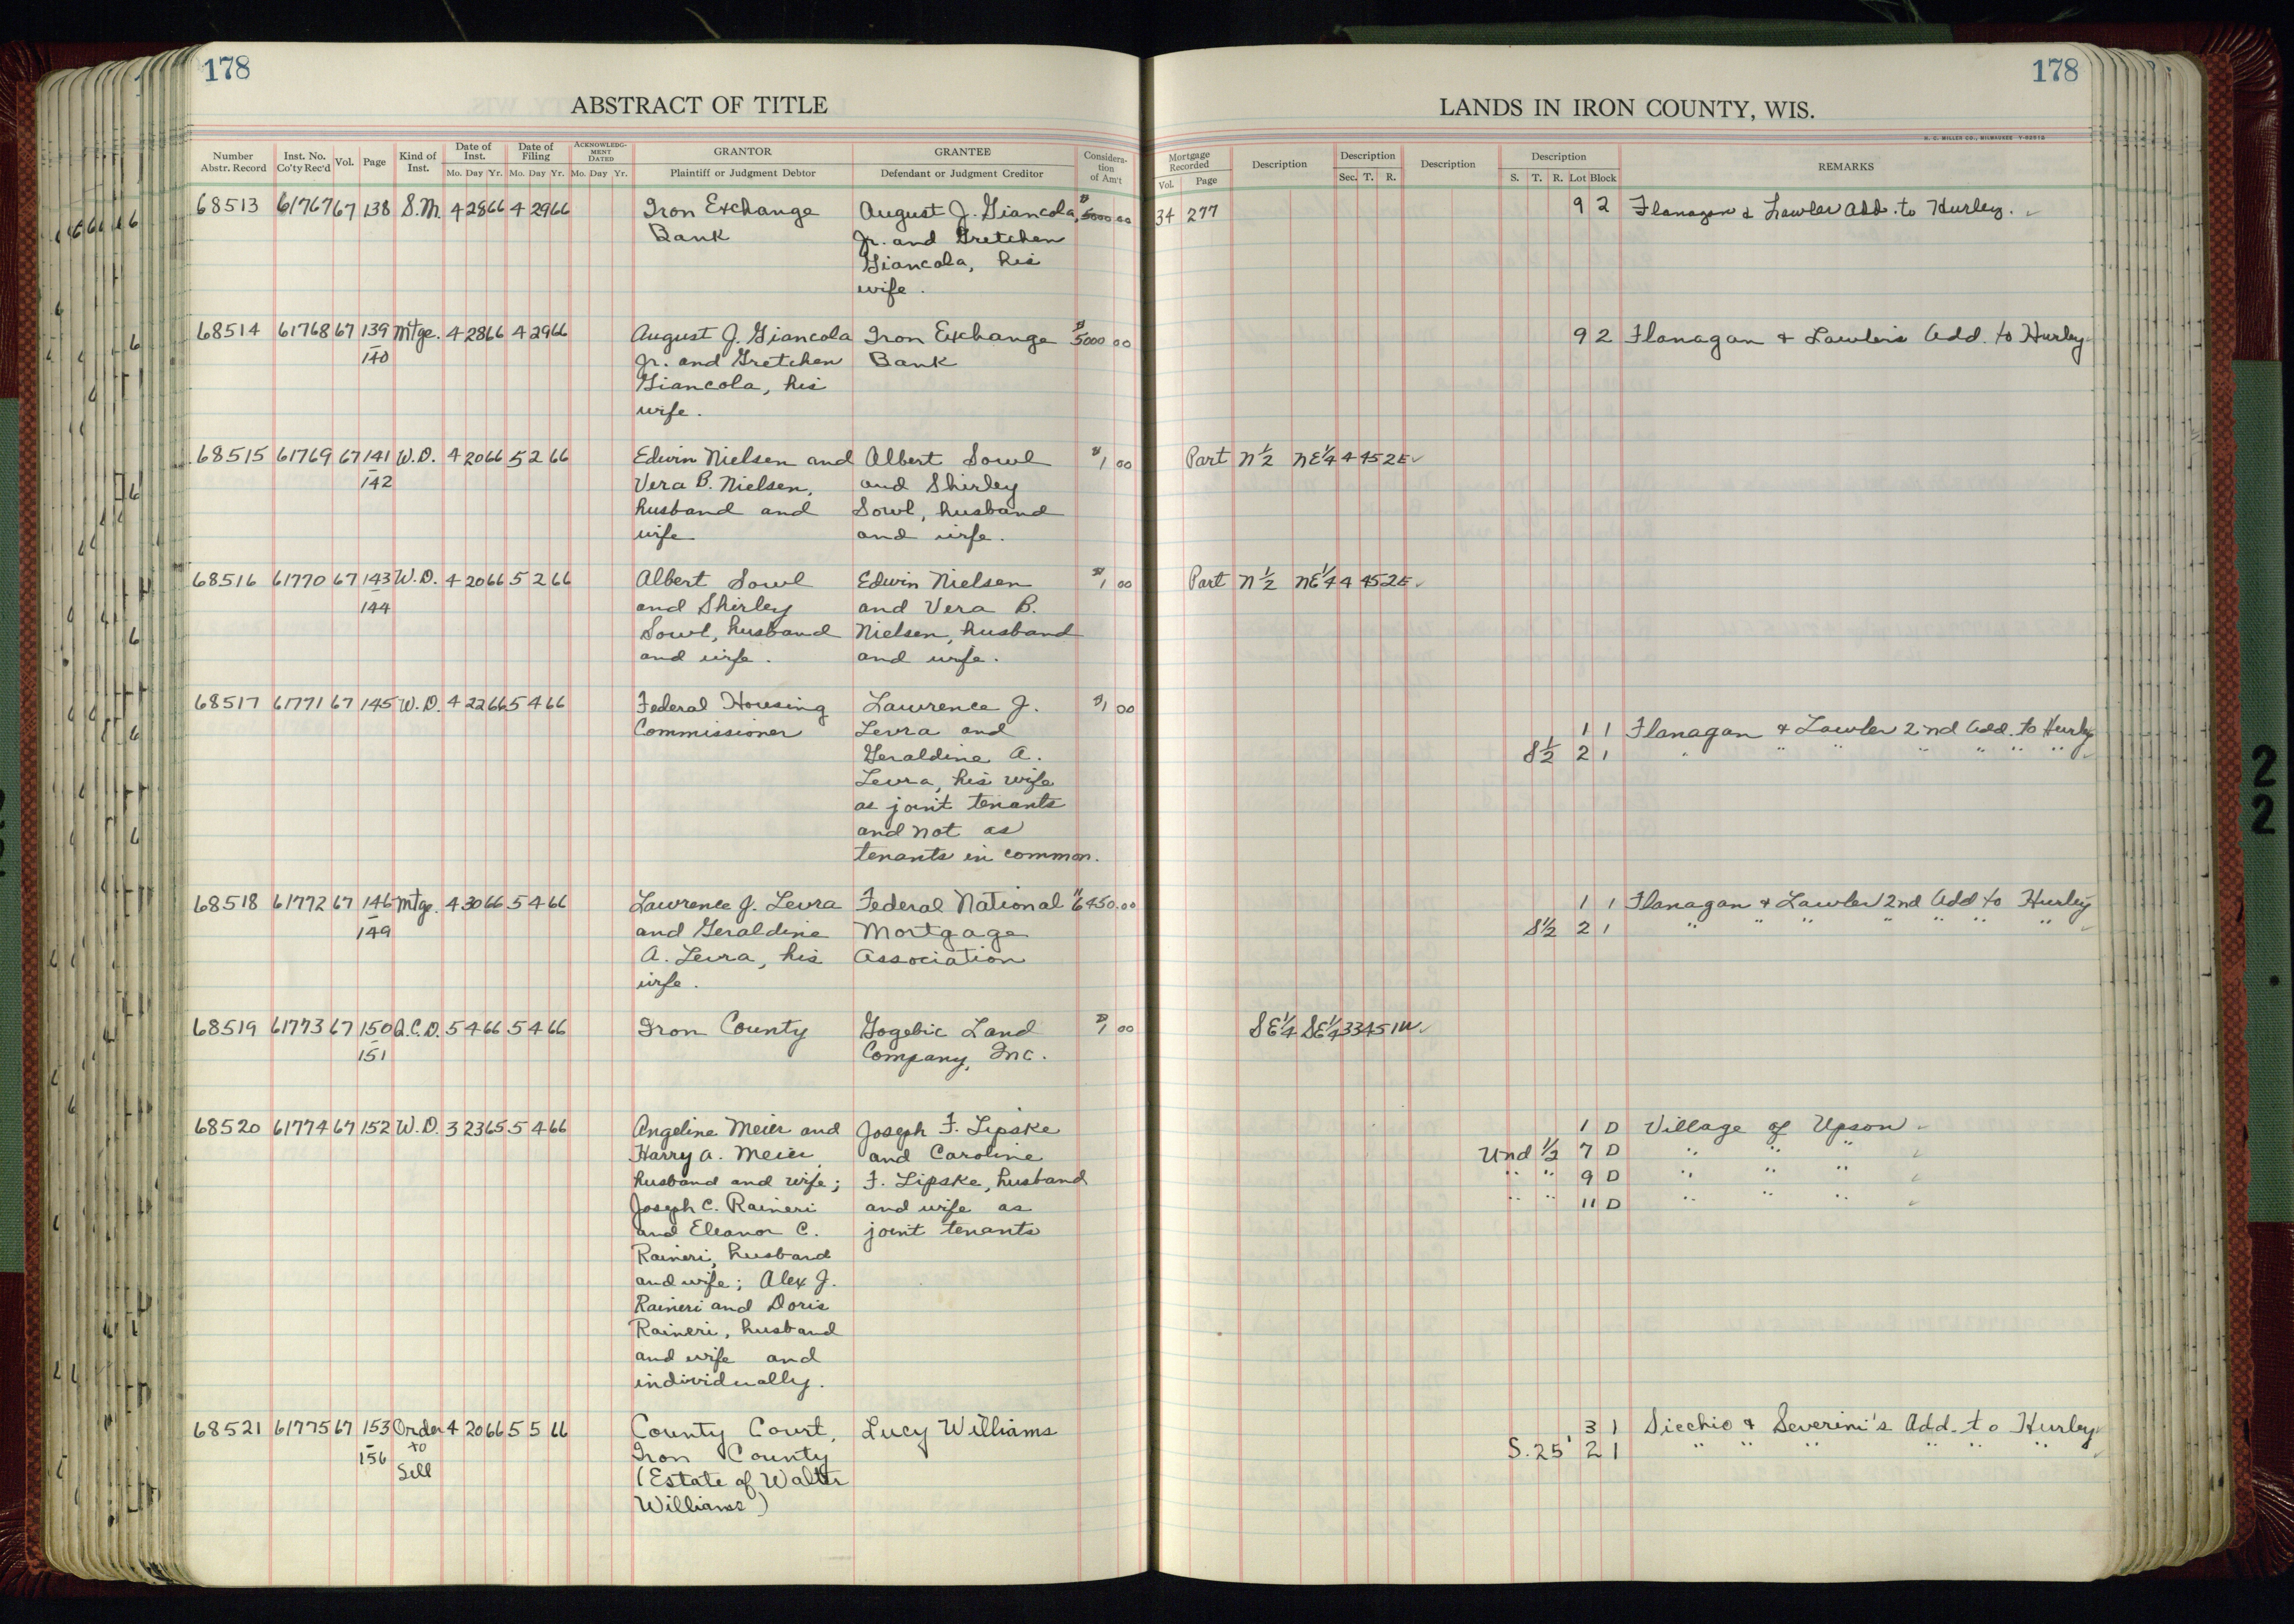 178
ABSTRACT OF TITLE
Number Abstr. Record | Inst. No. Co'ty Rec'd | Vol. | Page | Kind of Inst. | Date of Inst. Mo. Day Yr. | Date of Filing Mo. Day Yr. | ACKNOWLEDG-MENT DATED Mo. Day Yr. | GRANTOR Plaintiff or Judgment Debtor | GRANTEE Defendant or Judgment Creditor | Considera-tion of Am't
68513 61767 67 138 S.M. 4 28 66 4 29 66 Iron Exchange August J. Giancola, $5000 00
Bank Jr. and Gretchen
Giancola, his
wife.
68514 61768 67 139 Mtge. 4 28 66 4 29 66 August J. Giancola Iron Exchange $5000 00
140 Jr. and Gretchen Bank
Giancola, his
wife.
68515 61769 67 141 W.D. 4 20 66 5 2 66 Edwin Nielsen and Albert Sowl $1 00
142 Vera B. Nielsen, and Shirley
husband and Sowl, husband
wife and wife.
68516 61770 67 143 W.D. 4 20 66 5 2 66 Albert Sowl Edwin Nielsen $1 00
144 and Shirley and Vera B.
Sowl, husband Nielsen, husband
and wife. and wife.
68517 61771 67 145 W.D. 4 22 66 5 4 66 Federal Housing Lawrence J. $1 00
Commissioner Levra and
Geraldine A.
Levra, his wife
as joint tenants
and not as
tenants in common.
68518 61772 67 146 Mtge. 4 30 66 5 4 66 Lawrence J. Levra Federal National $6450.00
149 and Geraldine Mortgage
A. Levra, his Association
wife.
68519 61773 67 150 Q.C.D. 5 4 66 5 4 66 Iron County Gogebic Land $1 00
151 Company, Inc.
68520 61774 67 152 W.D. 3 23 65 5 4 66 Angeline Meier and Joseph F. Lipske
Harry A. Meier, and Caroline
husband and wife; F. Lipske, husband
Joseph C. Raineri and wife as
and Eleanor C. joint tenants
Raineri, husband
and wife; Alex J.
Raineri and Doris
Raineri, husband
and wife and
individually.
68521 61775 67 153 Order 4 20 66 5 5 66 County Court, Lucy Williams
156 to Iron County
Sell (Estate of Walter
Williams)
178
LANDS IN IRON COUNTY, WIS.
H. C. MILLER CO., MILWAUKEE
Mortgage Recorded Vol. Page | Description | Description Sec. T. R. | Description | Description S. T. R. Lot Block | REMARKS
34 277 9 2 Flanagan & Lawler Add. to Hurley.
9 2 Flanagan & Lawler's Add. to Hurley
Part N½ NE¼ 4 45 2E
Part N½ NE¼ 4 45 2E
1 1 Flanagan & Lawler 2nd Add. to Hurley
S½ 2 1 " " " " " " "
1 1 Flanagan & Lawler 2nd Add to Hurley
S½ 2 1 " " " " " " "
SE¼ SE¼ 33 45 1W
1 D Village of Upson
Und ½ 7 D " " "
" " 9 D " " "
" " 11 D " " "
3 1 Siechio & Severini's Add. to Hurley
S. 25' 2 1 " " " " " "
2
2